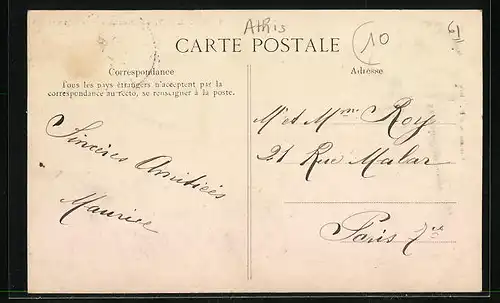 Athis
10
61
CARTE POSTALE
Correspondance
Tous les pays étrangers n'acceptent pas la
correspondance au recto, se renseigner à la poste.
Sincères Amitiées
Maurice
Adresse
Mr et Mme Roy
21 Rue Malar
Paris 7e